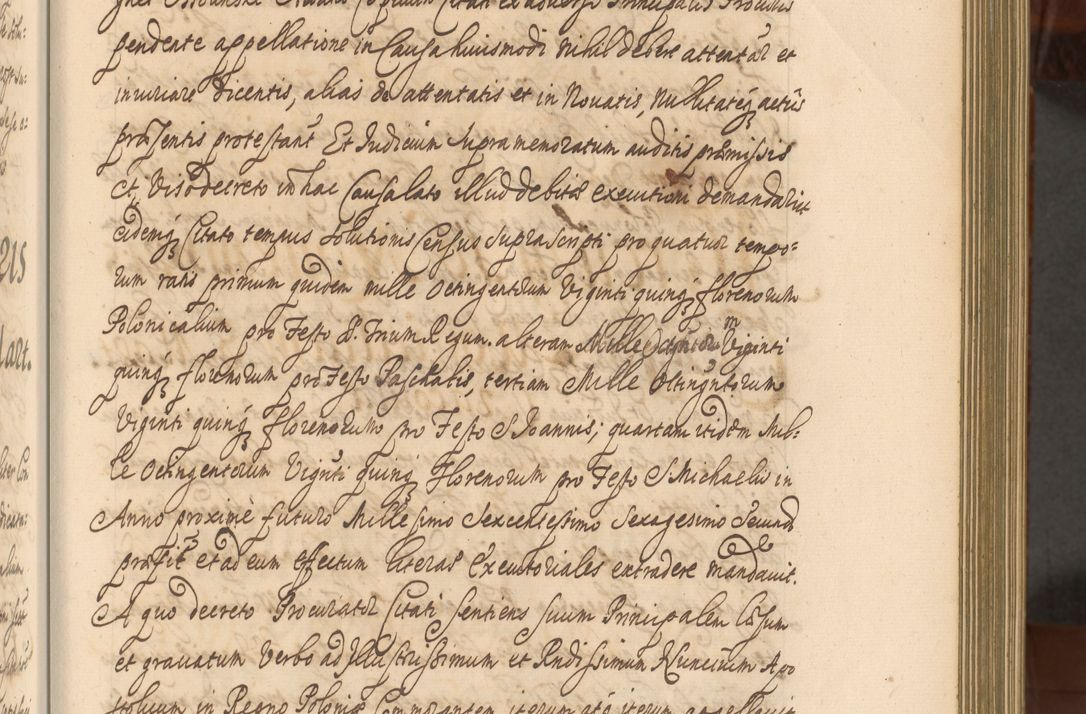 pendente appellatione in Causa huiusmodi nihil debere attentař et
inuiare dicentis, alias de attentatis et inNouatis, Nullitateq3 actus
præsentis protestant᷑ Et Iudicium supramemoratum auditis præmissis
et Viso decreto in hac Causa lato illud debitæ executioni demandauit
eidemq3 Citato tempus solutionis Census suprascripti pro quatuor tempo=
rum ratis primum quidem mille Octingentorum Viginti quinq3 florenorum
Polonicalium pro Festo S. Trium Regum. alteram Mille Octingentorum Viginti
quinq3 florenorum pro Festo Paschalis, tertiam Mille Octingentorum
Viginti quinq3 Florenorum pro Festo S Ioannis; quartam itidem Mil-
le Octingentorum Viginti quinq3 Florenorum pro Festo S Michaelis in
Anno proximè futuro Millesimo Sexcentesimo Sexagesimo Secundo
præfit᷑ et ad eum effectum literas Executoriales extradere mandauit.
A quo decreto Procurator Citati sentiens suum Principalem læsum
et grauatum Verbo ad Illustrissimum et Rndissimum Nuncium Apo
stolicum in Regno Poloniæ Commorantem iterum atq iterum appellauit